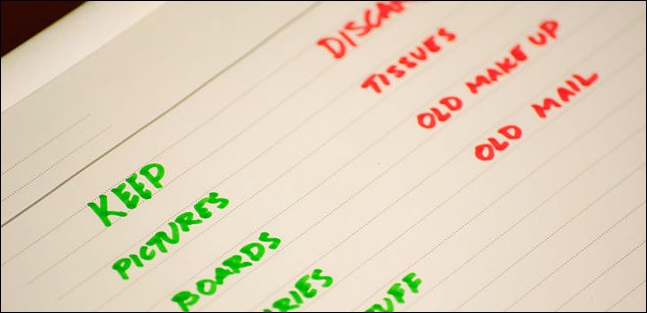 DISCAR
TISSUES
OLD MAKE UP
OLD MAIL
KEEP
PICTURES
BOARDS